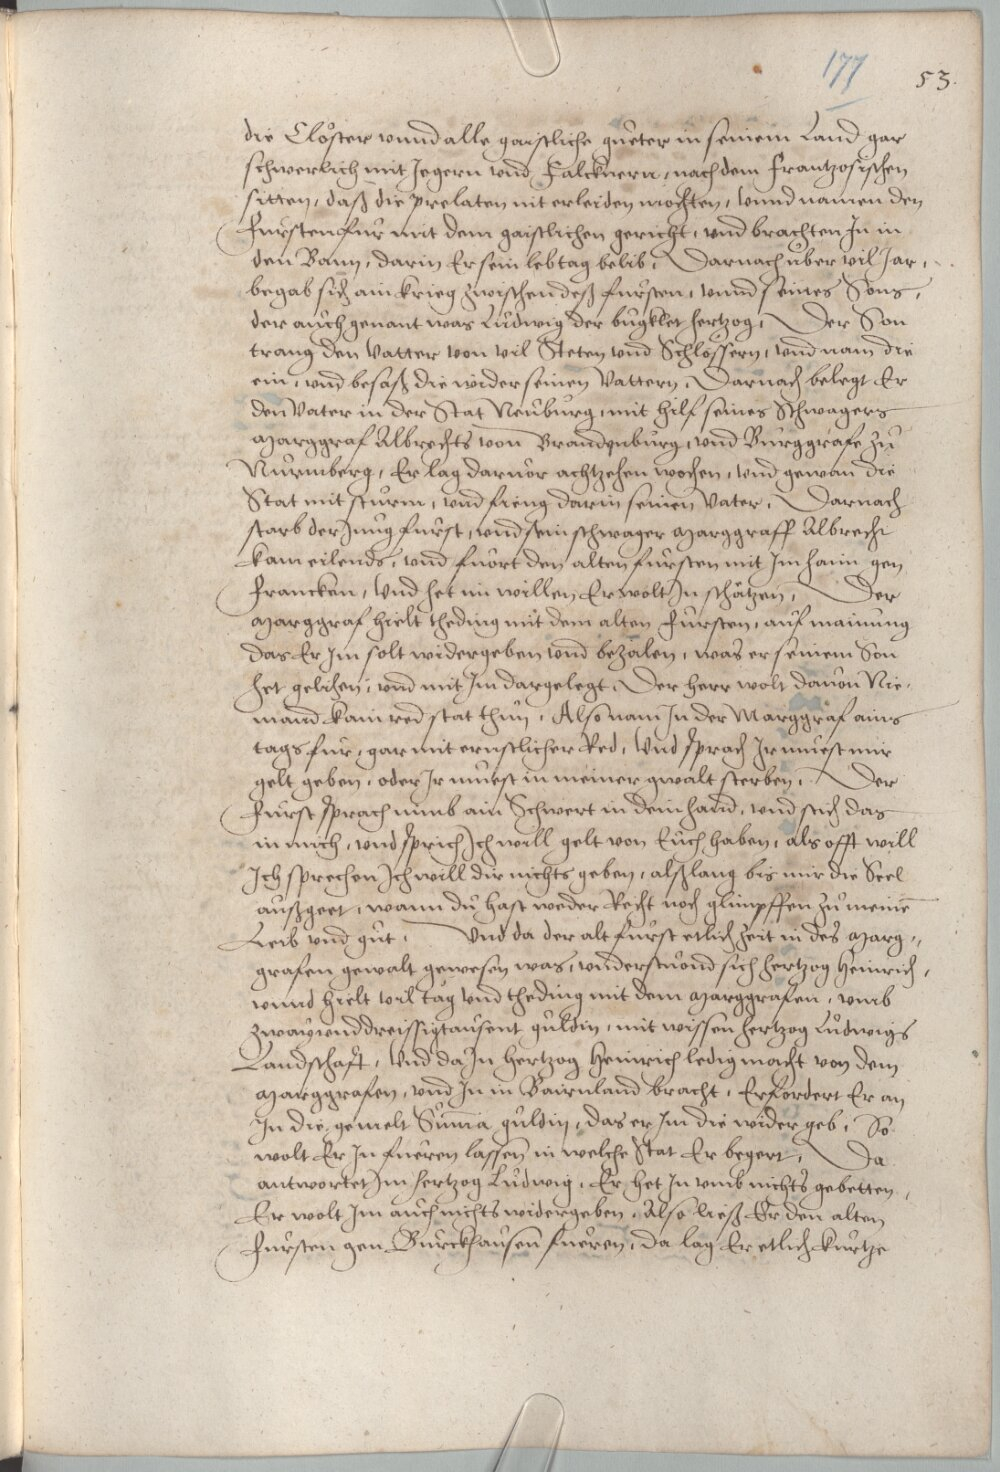 177
53.
die Clöster vnnd alle gaistliche güeter in seinem Land gar
schwerlich mit Jegern vnd Falcknern, nach dem Frantzosischen
sitten, daß die Prelaten nit erleiden mochten, vnnd namen den
Fürsten für mit dem gaistlichen gericht, vnd brachten Jn in
den Bann, darin Er sein lebtag belib. Darnach über vil Jar,
begab sich ain krieg zwischen deß fürsten, vnnd seines Sons,
der auch genant was Ludwig der bugklet hertzog. Der Son
trang den Vatter von vil Steten vnd Schlössern, vnd nam die
ein, vnd besaß die wider seinen Vattern. Darnach belegt Er
den Vater in der Stat Neuburg, mit hilf seines Schwagers
Marggraf Albrechts von Brandenburg, vnd Burggrafe zu
Nürmberg, Er lag daruor achtzehen wochen, vnd gewan die
Stat mit sturm, vnd fieng darin seinen Vater. Darnach
starb der Jung fürst, vnd sein schwager Marggraff Albrecht
kam eilends, vnd fuort den alten fürsten mit Jm haim gen
Francken, Vnd het im willen Er wolt Jn schätzen. Der
Marggraf hielt theding mit dem alten Fürsten, auf mainung
das Er Jm solt widergeben vnd bezalen, was er seinem Son
het gelihen, vnd mit Jm dargelegt. Der herr wolt dauon Nie-
mand kain red stat thun. Also nam Jn der Marggraf ains
tags für, gar mit ernstlicher Red, Vnd sprach Jr müest mir
gelt geben, oder Jr müest in meiner gwalt sterben. Der
Fürst sprach nimb ain Schwert in dein hand, vnd stich das
in mich, vnd sprich Jch will gelt von Euch haben, als offt will
Jch sprechen Jch will dir nichts geben, alßlang bis mir die Seel
außgeet, wann du hast weder Recht noch glimpffen zu meinē
Leib vnd gut. Vnd da der alt fürst etlich zeit in des Marg-
grafen gewalt gewesen was, vnderstuond sich hertzog Heinrich,
vnnd hielt vil tag vnd theding mit dem Marggrafen, vmb
zwayvnddreissigtausent guldin, mit wissen hertzog Ludwigs
Landschaft, Vnd da Jn hertzog Heinrich ledig macht von dem
Marggrafen, vnd Jn in Bairnland bracht, Erfordert Er an
Jn die gemelt Suma guldin, das er Jm die wider geb, So
wolt Er Jn füeren lassen in welche Stat Er begert. Da
antwortet Jm hertzog Ludwig, Er het Jn vmb nichts gebetten,
Er wolt Jm auch nichts widergeben, Also ließ Er den alten
Fürsten gen Burckhausen füeren, da lag Er etlich kurtze